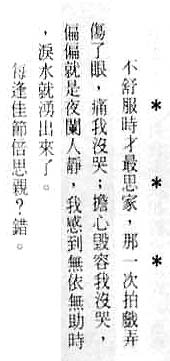 * * *
不舒服時才最思家，那一次拍戲弄
傷了眼，痛我沒哭；擔心毀容我沒哭，
偏偏就是夜闌人靜，我感到無依無助時
，淚水就湧出來了。
每逢佳節倍思親？錯。